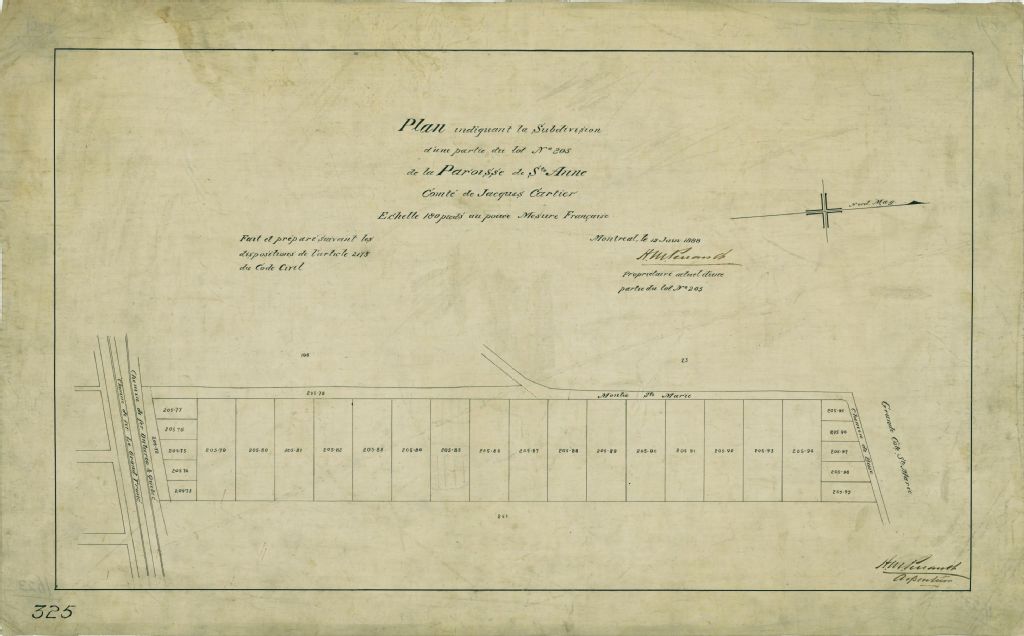 Plan indiquant la Subdivision
d'une partie du lot Nº 205
de la Paroisse de Ste Anne
Comté de Jacques Cartier
Echelle 180 pieds au pouce Mesure Française
Fait et préparé suivant les
dispositions de l'article 2175
du Code Civil
Montreal, le 12 Juin 1888
H. M. Perrault
Propriétaire actuel d'une
partie du lot Nº 205
Sud Mag
23
205-78
Montée Ste Marie
205-77
205-76
205-75
205-74
205-73
205-79
205-80
205-81
205-82
205-83
205-84
205-85
205-86
205-87
205-88
205-89
205-90
205-91
205-92
205-93
205-94
205-97
205-98
Chemin de fer Le Grand Tronc
Chemin de fer Ontario & Québec
Chemin de Base
Grande Côte Ste Marie
H. M. Perrault
Arpenteur
325